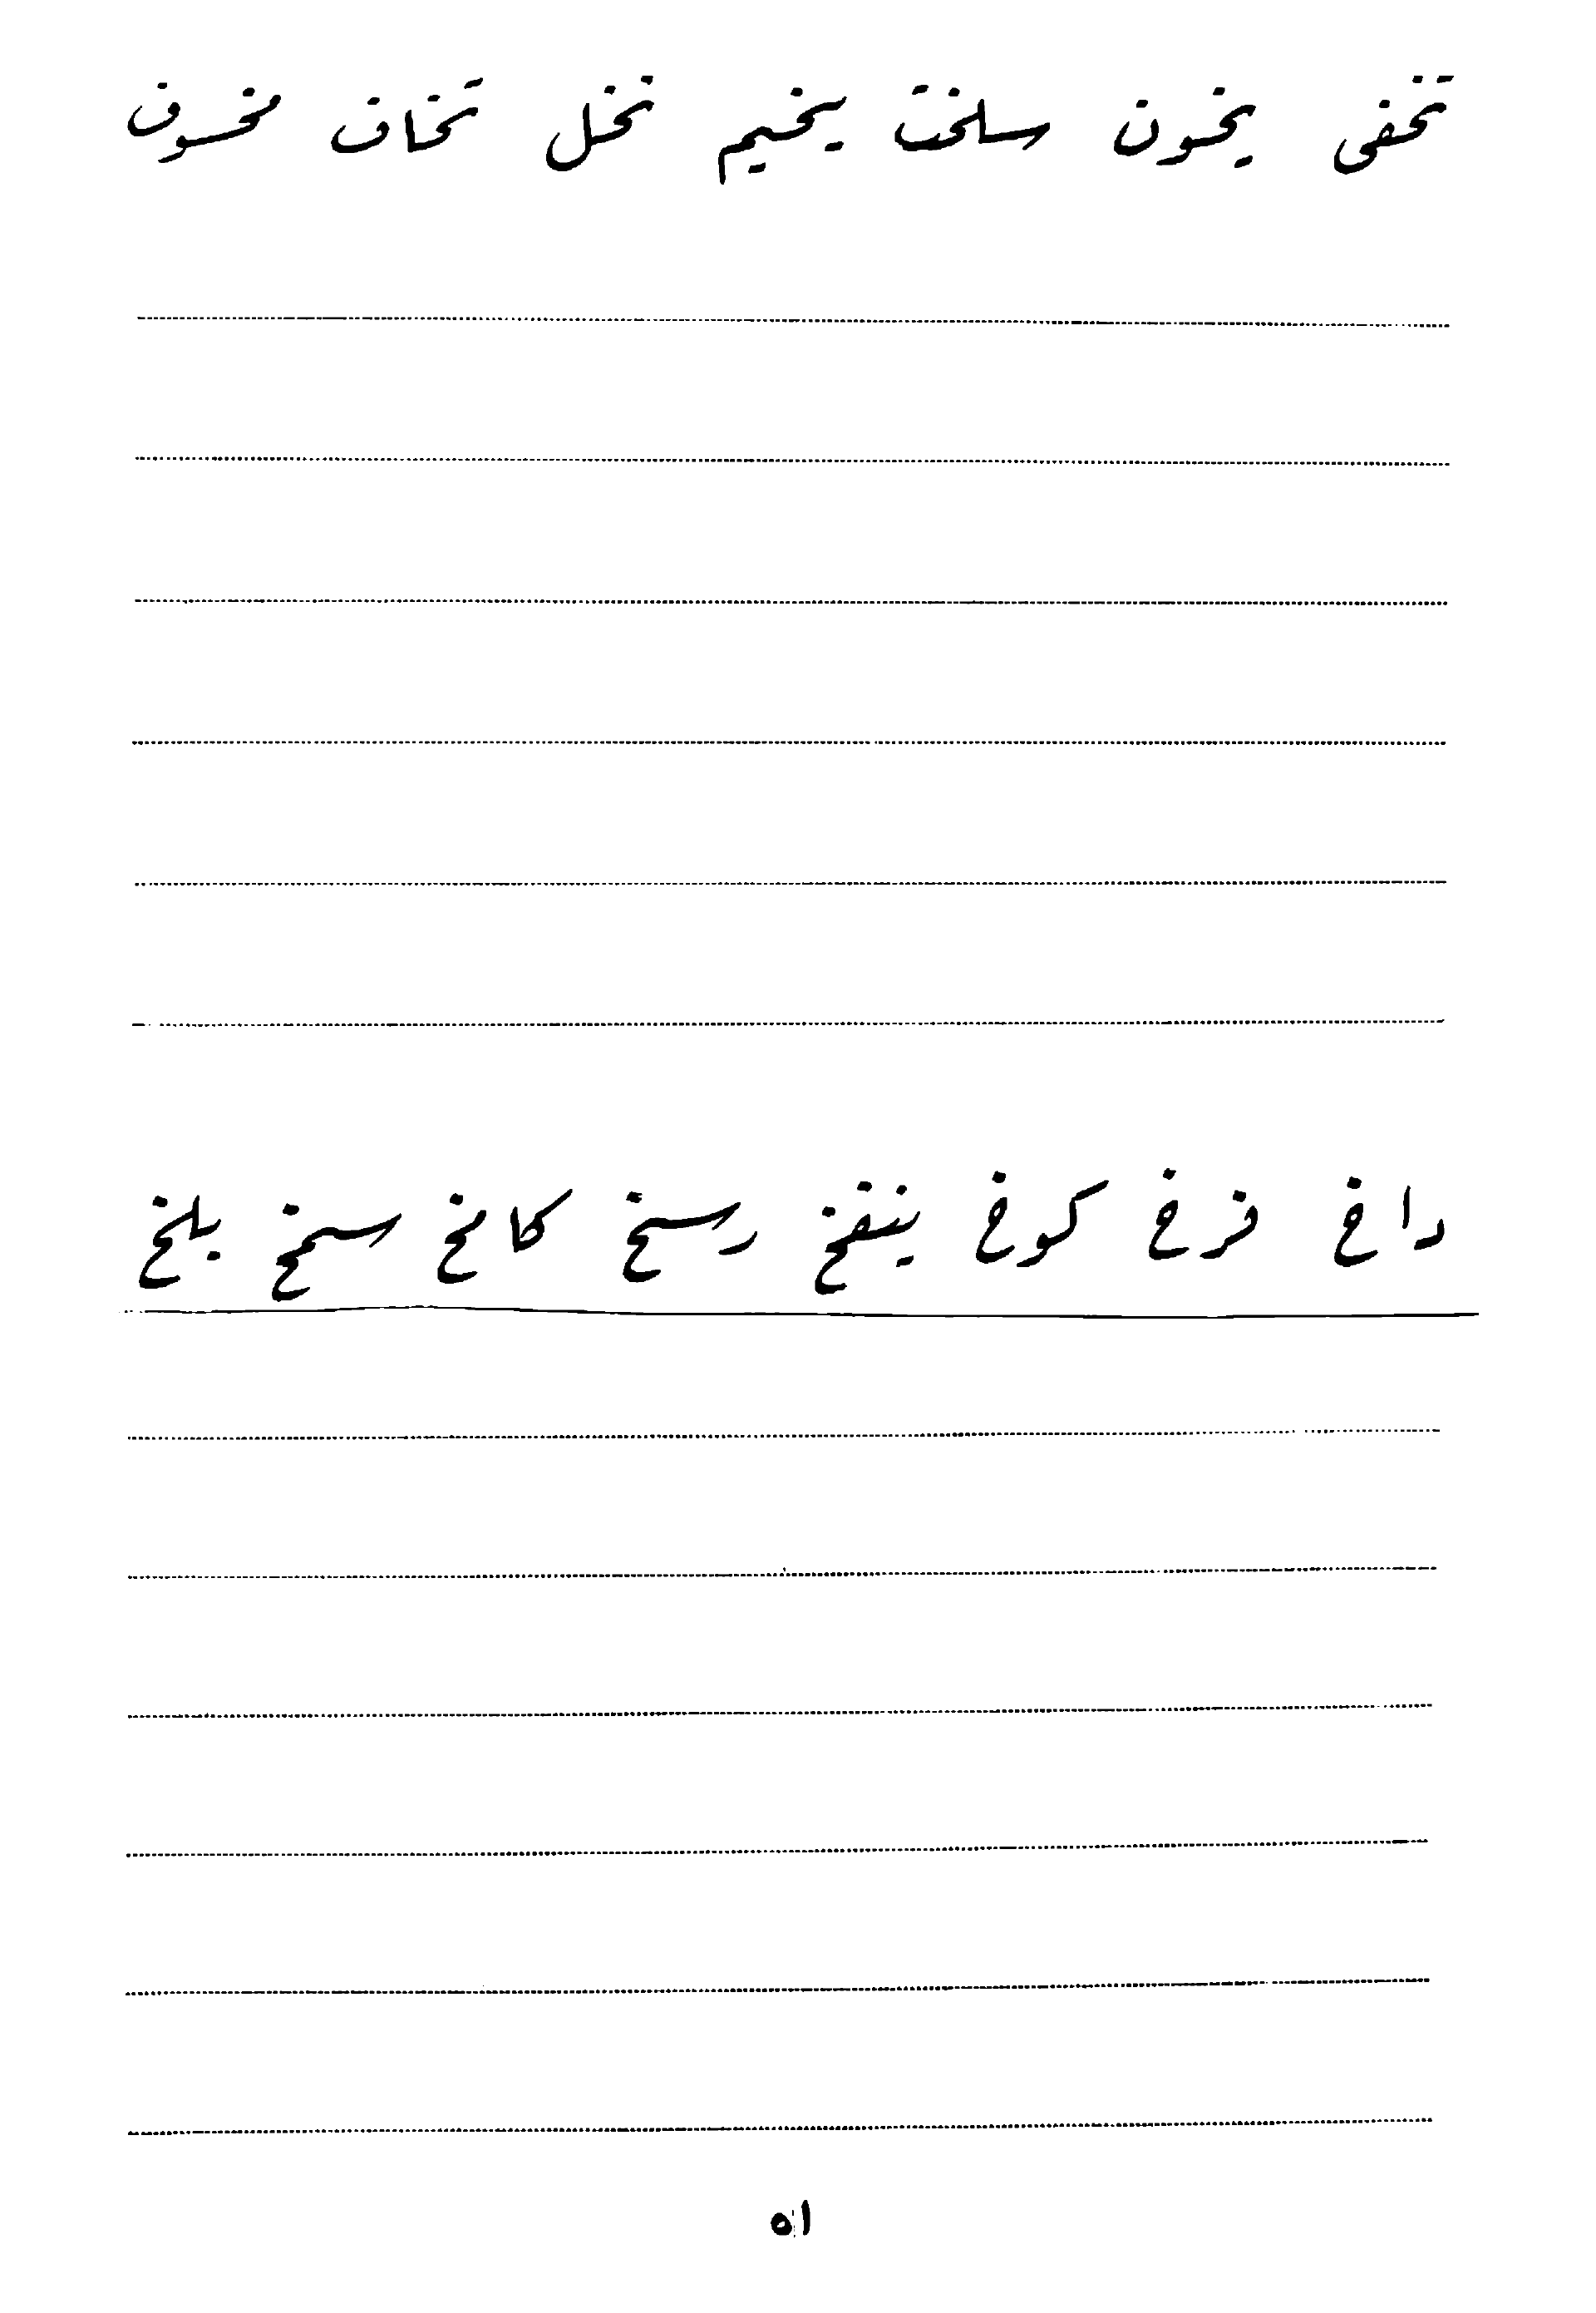 تخفى يخون سلخت يخيم نخل تخاف مخسوف
داخ فرخ كوخ ينفخ رسخ كامخ سمخ بلخ
٥١